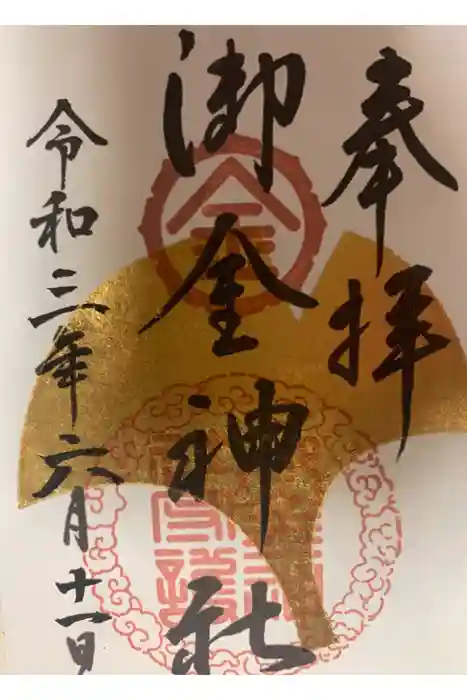 奉拝
御金神社
令和三年六月十一日